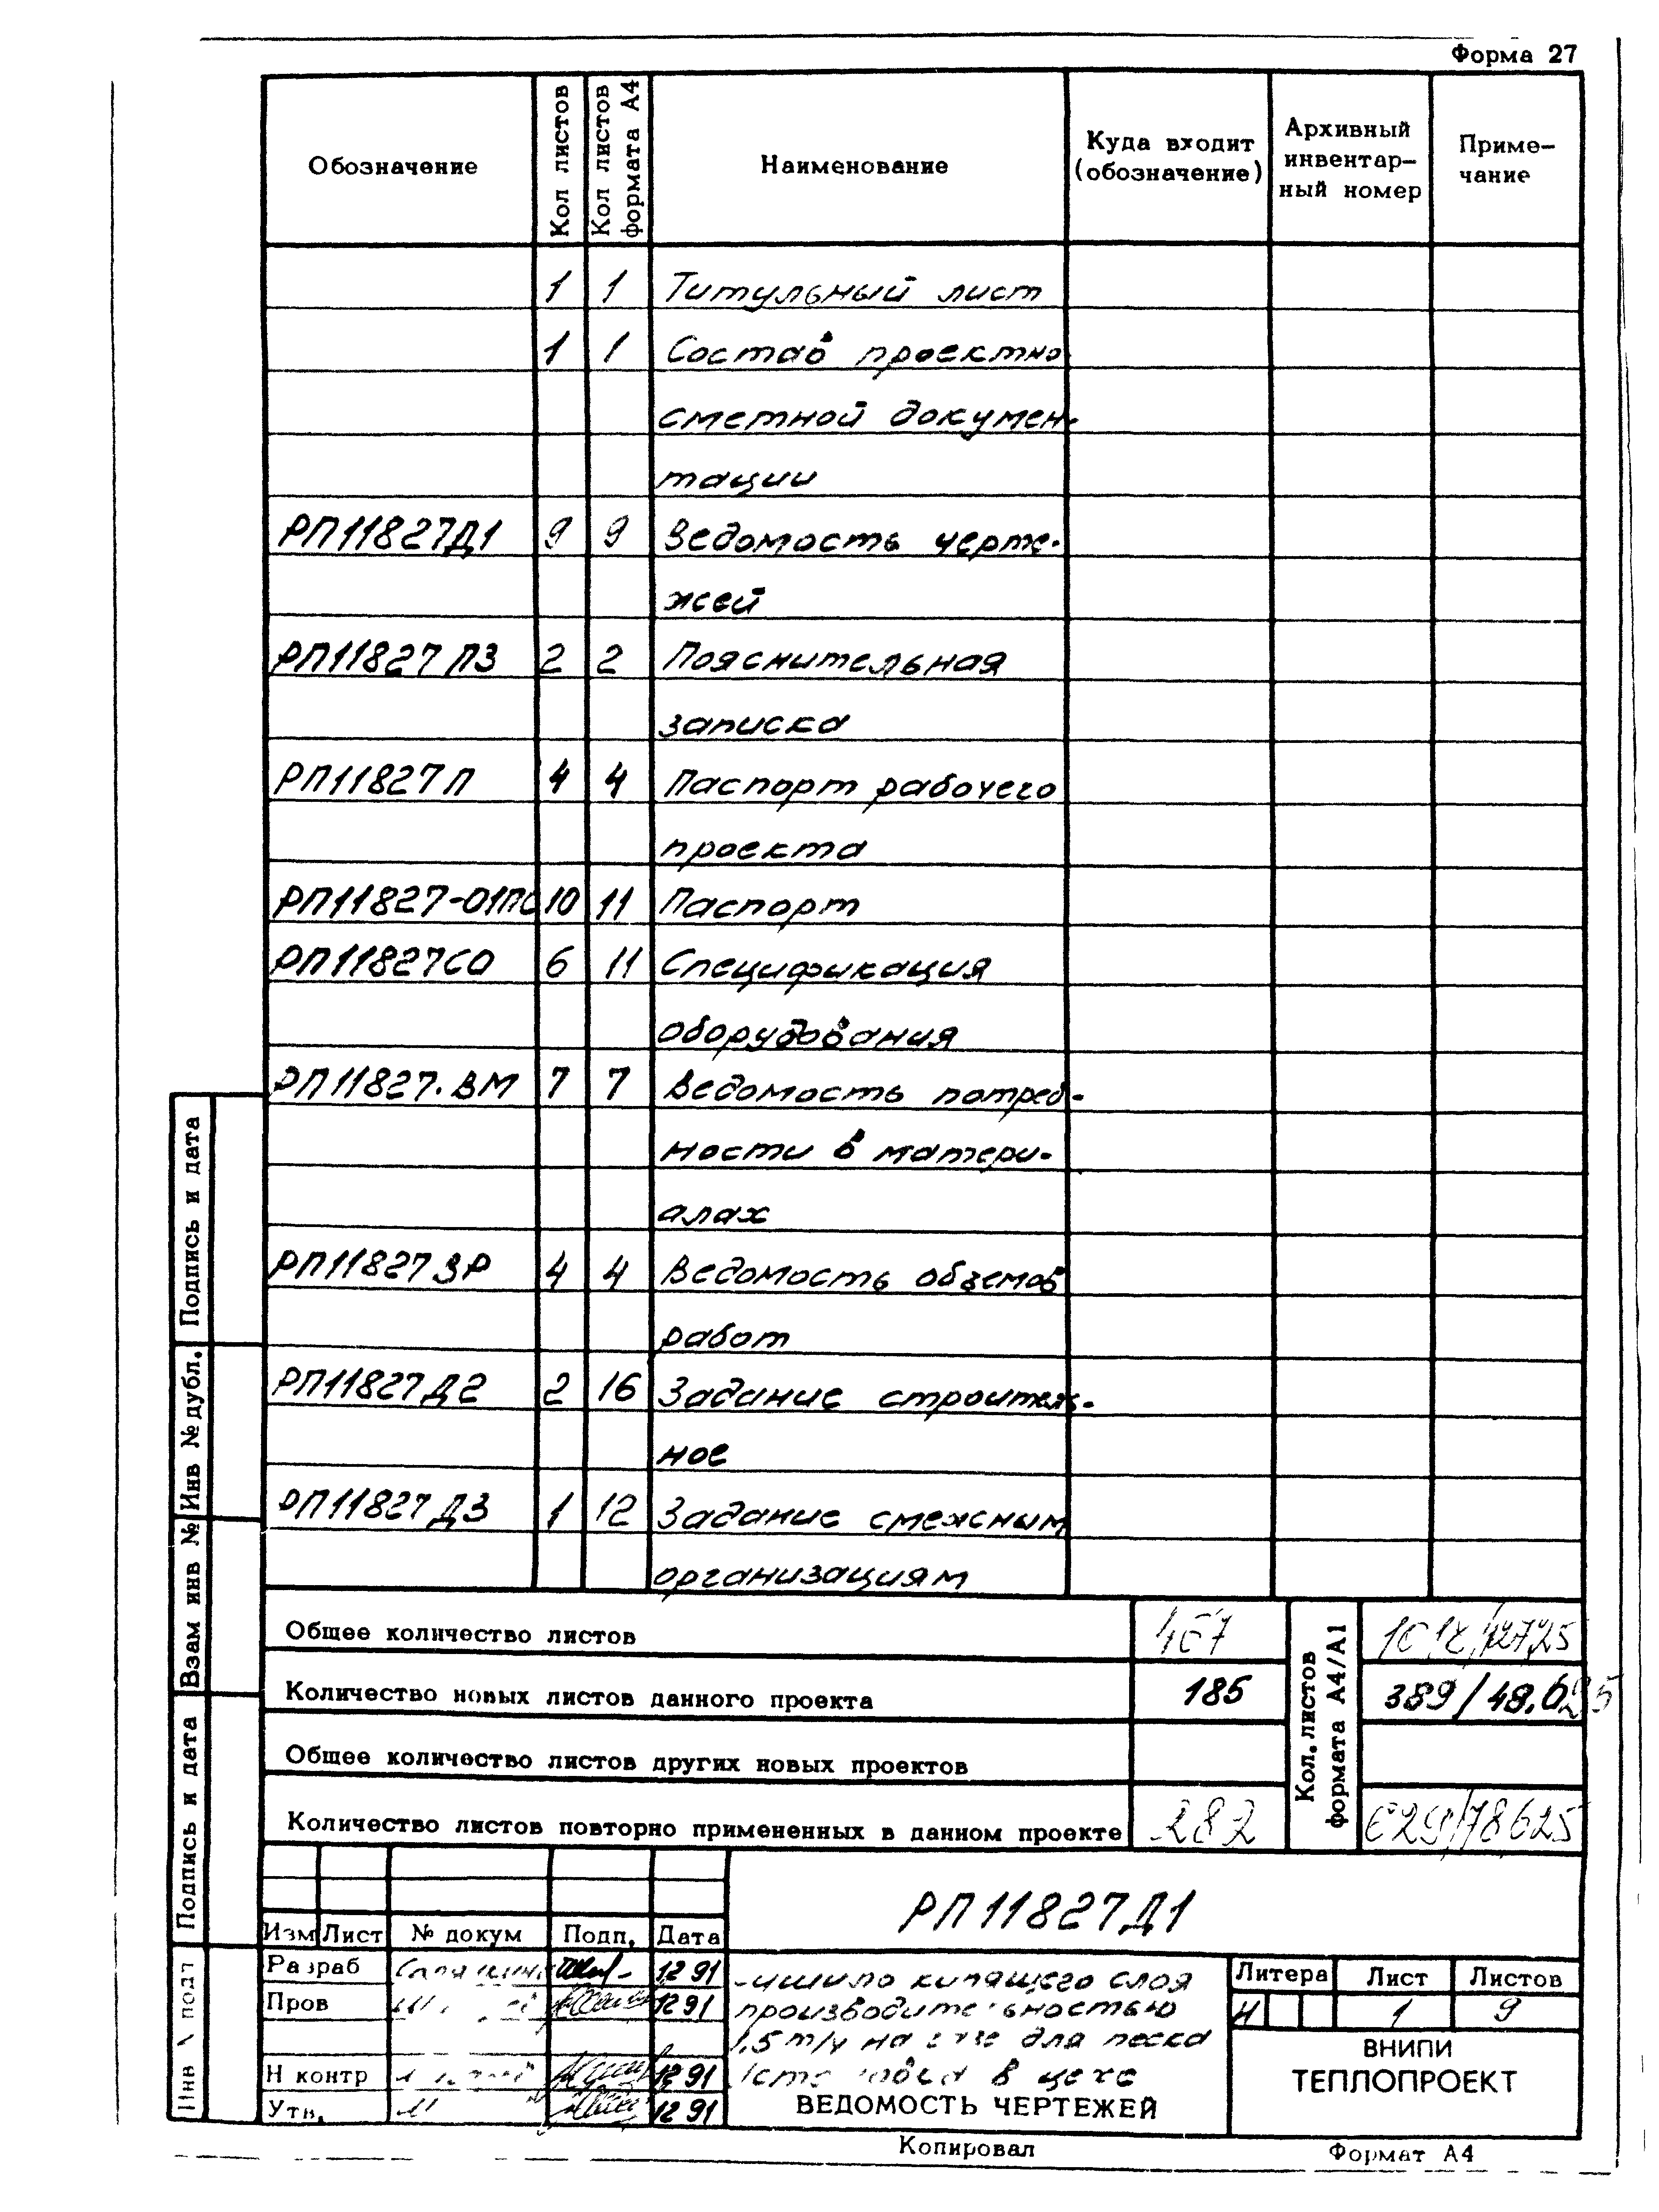 Форма 27
Обозначение
Кол листов
Кол листов формата А4
Наименование
Куда входит (обозначение)
Архивный инвентар- ный номер
Приме- чание
1 1 Титульный лист
1 1 Состав проектно
сметной докумен-
тации
РП11827Д1 9 9 Ведомость черте-
жей
РП11827 ПЗ 2 2 Пояснительная
записка
РП11827 П 4 4 Паспорт рабочего
проекта
РП11827-01ПС 10 11 Паспорт
РП11827СО 6 11 Спецификация
оборудования
РП11827.ВМ 7 7 Ведомость потреб-
ности в матери-
алах
РП11827 ВР 4 4 Ведомость объемов
работ
РП11827 Д2 2 16 Задание строитель-
ное
РП11827 Д3 1 12 Задание смежным
организациям
Общее количество листов 467
Количество новых листов данного проекта 185 389/48.625
Общее количество листов других новых проектов
Количество листов повторно примененных в данном проекте 282 629/78625
Кол. листов формата А4/А1
РП11827Д1
Изм Лист № докум Подп. Дата
Разраб 12 91
Пров 12 91
Н контр 12 91
Утв. 12 91
кипящего слоя
производительностью
1,5 т/ч на для песка
в цехе
ВЕДОМОСТЬ ЧЕРТЕЖЕЙ
Литера Лист Листов
И 1 9
ВНИПИ
ТЕПЛОПРОЕКТ
Копировал
Формат А4
Подпись и дата
Инв № дубл.
Взам инв №
Подпись и дата
Инв № подп